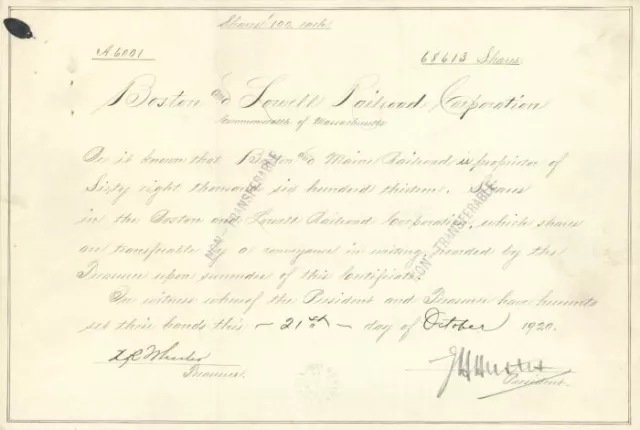 Shares 100 each
A6001
68613 Shares
Boston and Lowell Railroad Corporation
Commonwealth of Massachusetts
Be it known that Boston and Maine Railroad is proprietor of
Sixty eight thousand six hundred thirteen Shares
in the Boston and Lowell Railroad Corporation, which shares
are transferable by a conveyance in writing recorded by the
Treasurer upon surrender of this Certificate.
In witness whereof the President and Treasurer have hereunto
set their hands this 21st day of October 1920.
Wheeler
Treasurer.
President.
NON-TRANSFERABLE
NON-TRANSFERABLE